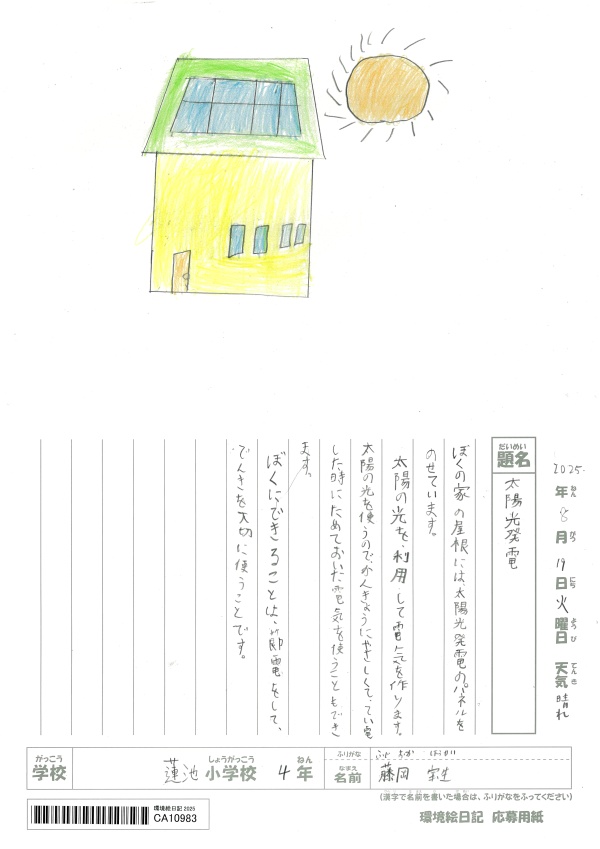 2025.年ねん8月がつ19日にち火曜日ようび 天気てんき晴れ
だいめい
題名
太陽光発電
ぼくの家の屋根には、太陽光発電のパネルを
のせています。
太陽の光を利用して電気を作ります。
太陽の光を使うので、かんきょうにやさしくて、てい電
した時にためておいた電気を使うこともでき
ます。
ぼくにできることは、節電をして、
でんきを大切に使うことです。
がっこう
学校
蓮池
しょうがっこう
小学校
4
ねん
年
ふりがな
ふじ おか
なまえ
名前
藤岡
(漢字で名前を書いた場合は、ふりがなをふってください)
環境絵日記 2025
CA10983
環境絵日記 応募用紙